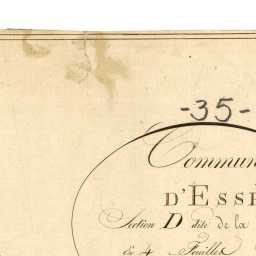 -35-
Commun
D'ESSÉ
Section D dite de la
En 4 Feuilles